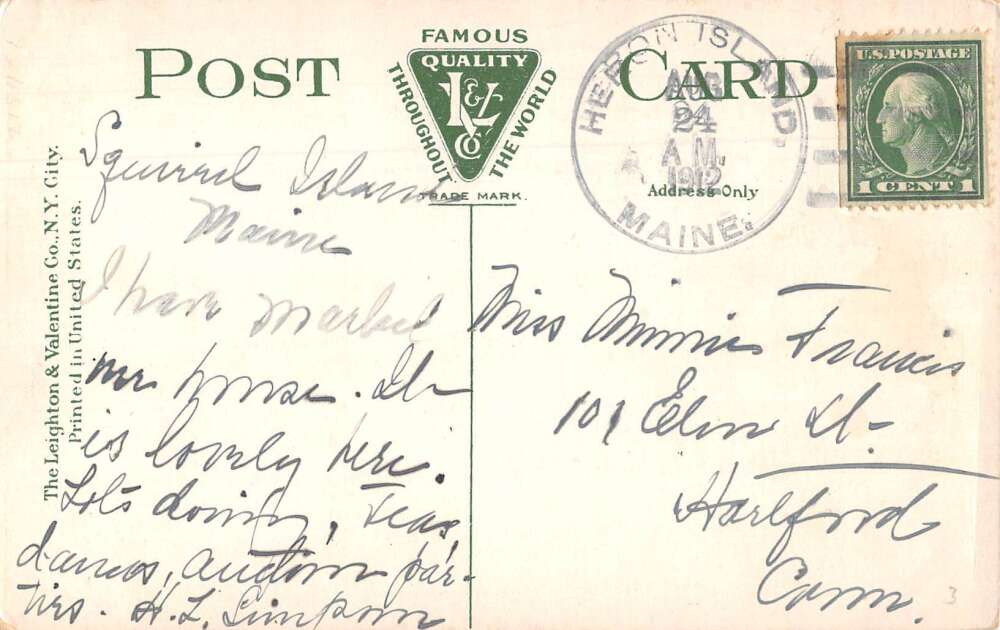 POST CARD
FAMOUS
QUALITY
THROUGHOUT THE WORLD
L & V
CO
TRADE MARK.
Address Only
HERON ISLAND.
AUG
24
A.M.
1912
MAINE.
U.S. POSTAGE
1 CENT 1
The Leighton & Valentine Co., N.Y. City.
Printed in United States.
Squirrel Island
Maine
I have marked
our house. It
is lovely here.
Lots doing, Teas,
dances, auction par-
ties. H. L. Simpson
Miss Minnie Francis
101 Elm St.
Hartford
Conn.
3